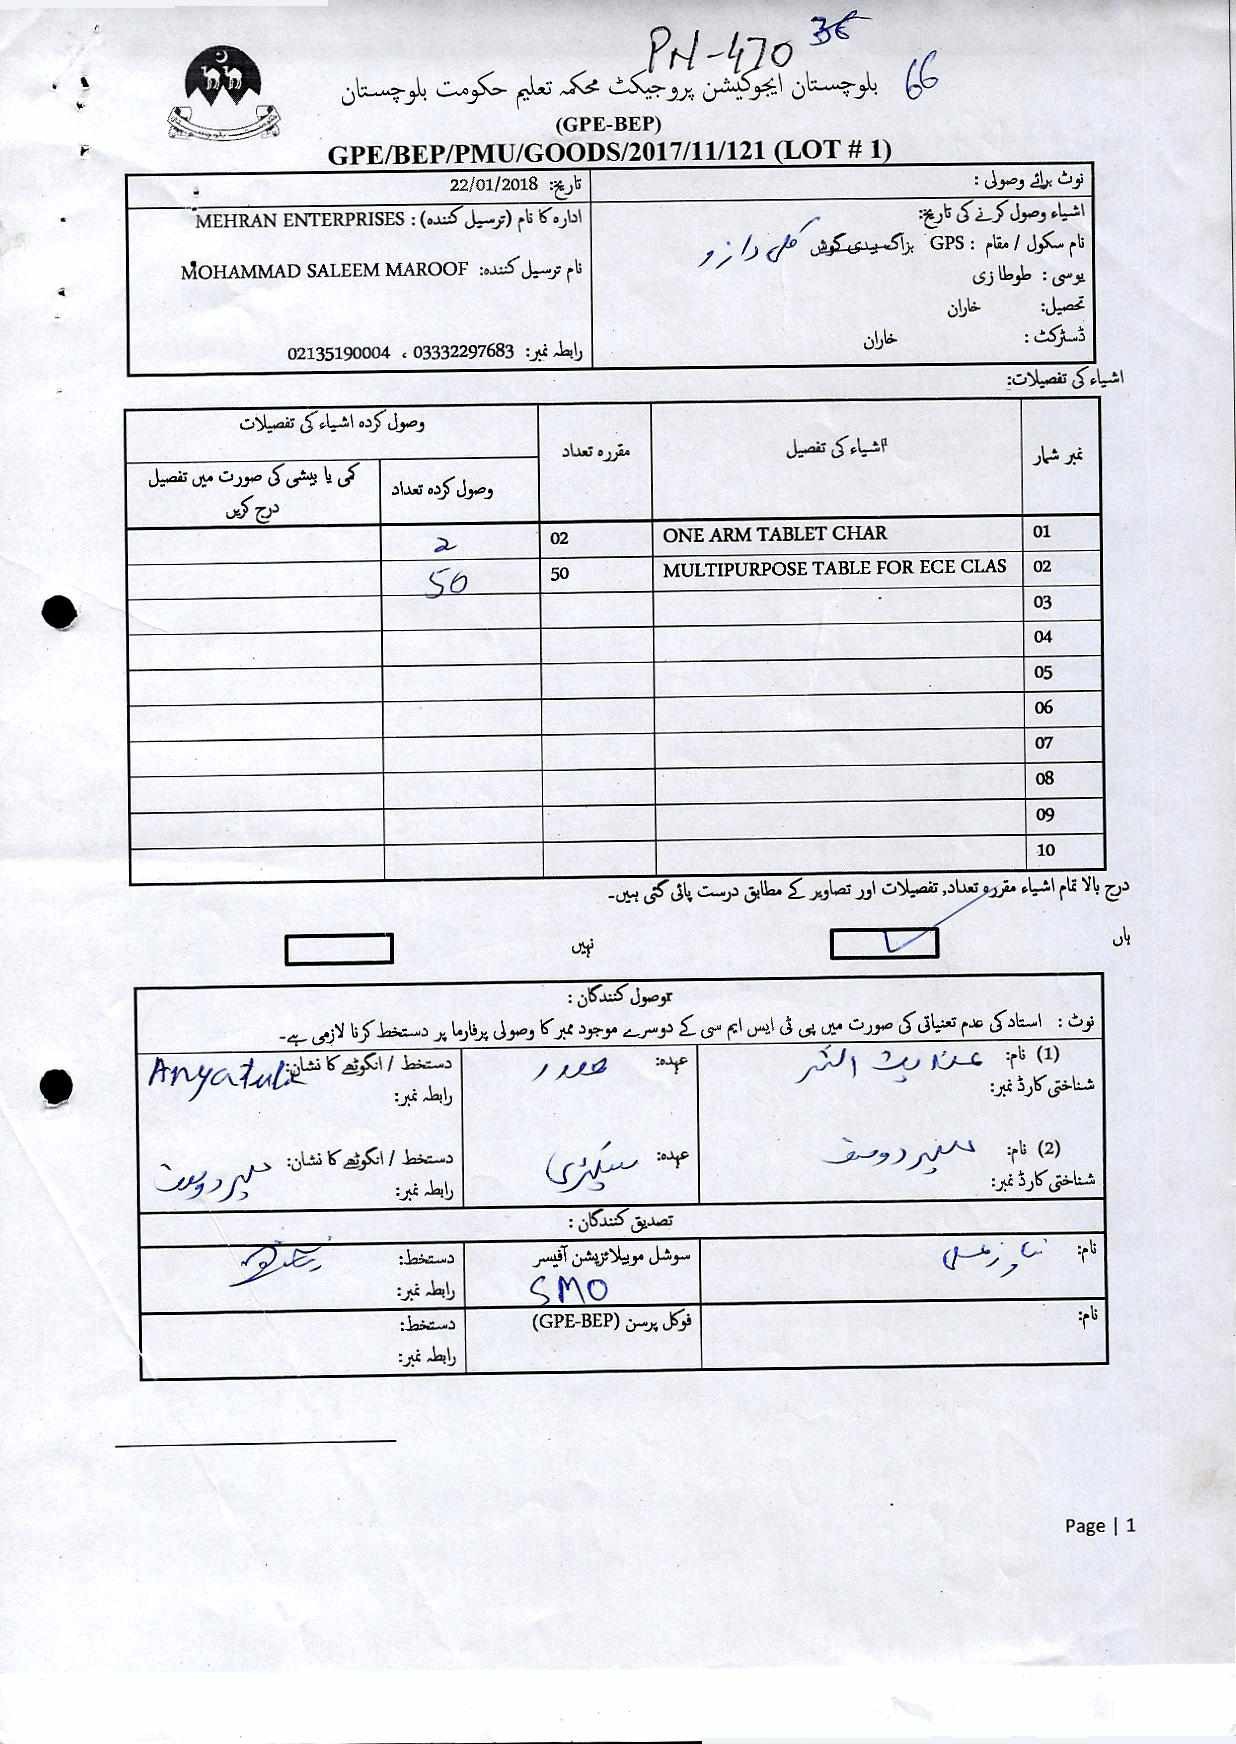 PN-470
66
بلوچستان ایجوکیشن پروجیکٹ محکمہ تعلیم حکومت بلوچستان
(GPE-BEP)
GPE/BEP/PMU/GOODS/2017/11/121 (LOT # 1)
نوٹ برائے وصولی :
اشیاء وصول کرنے کی تاریخ:
نام سکول / مقام : GPS بزاگ سیدی گوش
یوسی : طوطازی
تحصیل: خاران
ڈسٹرکٹ : خاران
تاریخ: 22/01/2018
ادارہ کا نام (ترسیل کنندہ) : MEHRAN ENTERPRISES
نام ترسیل کنندہ: MOHAMMAD SALEEM MAROOF
رابطہ نمبر: 03332297683 ، 02135190004
اشیاء کی تفصیلات:
نمبر شمار اشیاء کی تفصیل مقررہ تعداد وصول کردہ اشیاء کی تفصیلات
وصول کردہ تعداد کمی یا بیشی کی صورت میں تفصیل درج کریں
01 ONE ARM TABLET CHAR 02 2
02 MULTIPURPOSE TABLE FOR ECE CLAS 50 50
03
04
05
06
07
08
09
10
درج بالا تمام اشیاء مقررہ تعداد, تفصیلات اور تصاویر کے مطابق درست پائی گئی ہیں۔
ہاں نہیں
وصول کنندگان :
نوٹ : استاد کی عدم تعنیاتی کی صورت میں پی ٹی ایس ایم سی کے دوسرے موجود ممبر کا وصولی پرفارما پر دستخط کرنا لازمی ہے۔
(1) نام: عنایت اللہ عہدہ: صدر دستخط / انگوٹھے کا نشان: Anyatula
شناختی کارڈ نمبر: رابطہ نمبر:
(2) نام: عہدہ: سیکٹری دستخط / انگوٹھے کا نشان:
شناختی کارڈ نمبر: رابطہ نمبر:
تصدیق کنندگان :
نام: سوشل موبیلائزیشن آفیسر دستخط:
SMO رابطہ نمبر:
نام: فوکل پرسن (GPE-BEP) دستخط:
رابطہ نمبر:
Page | 1